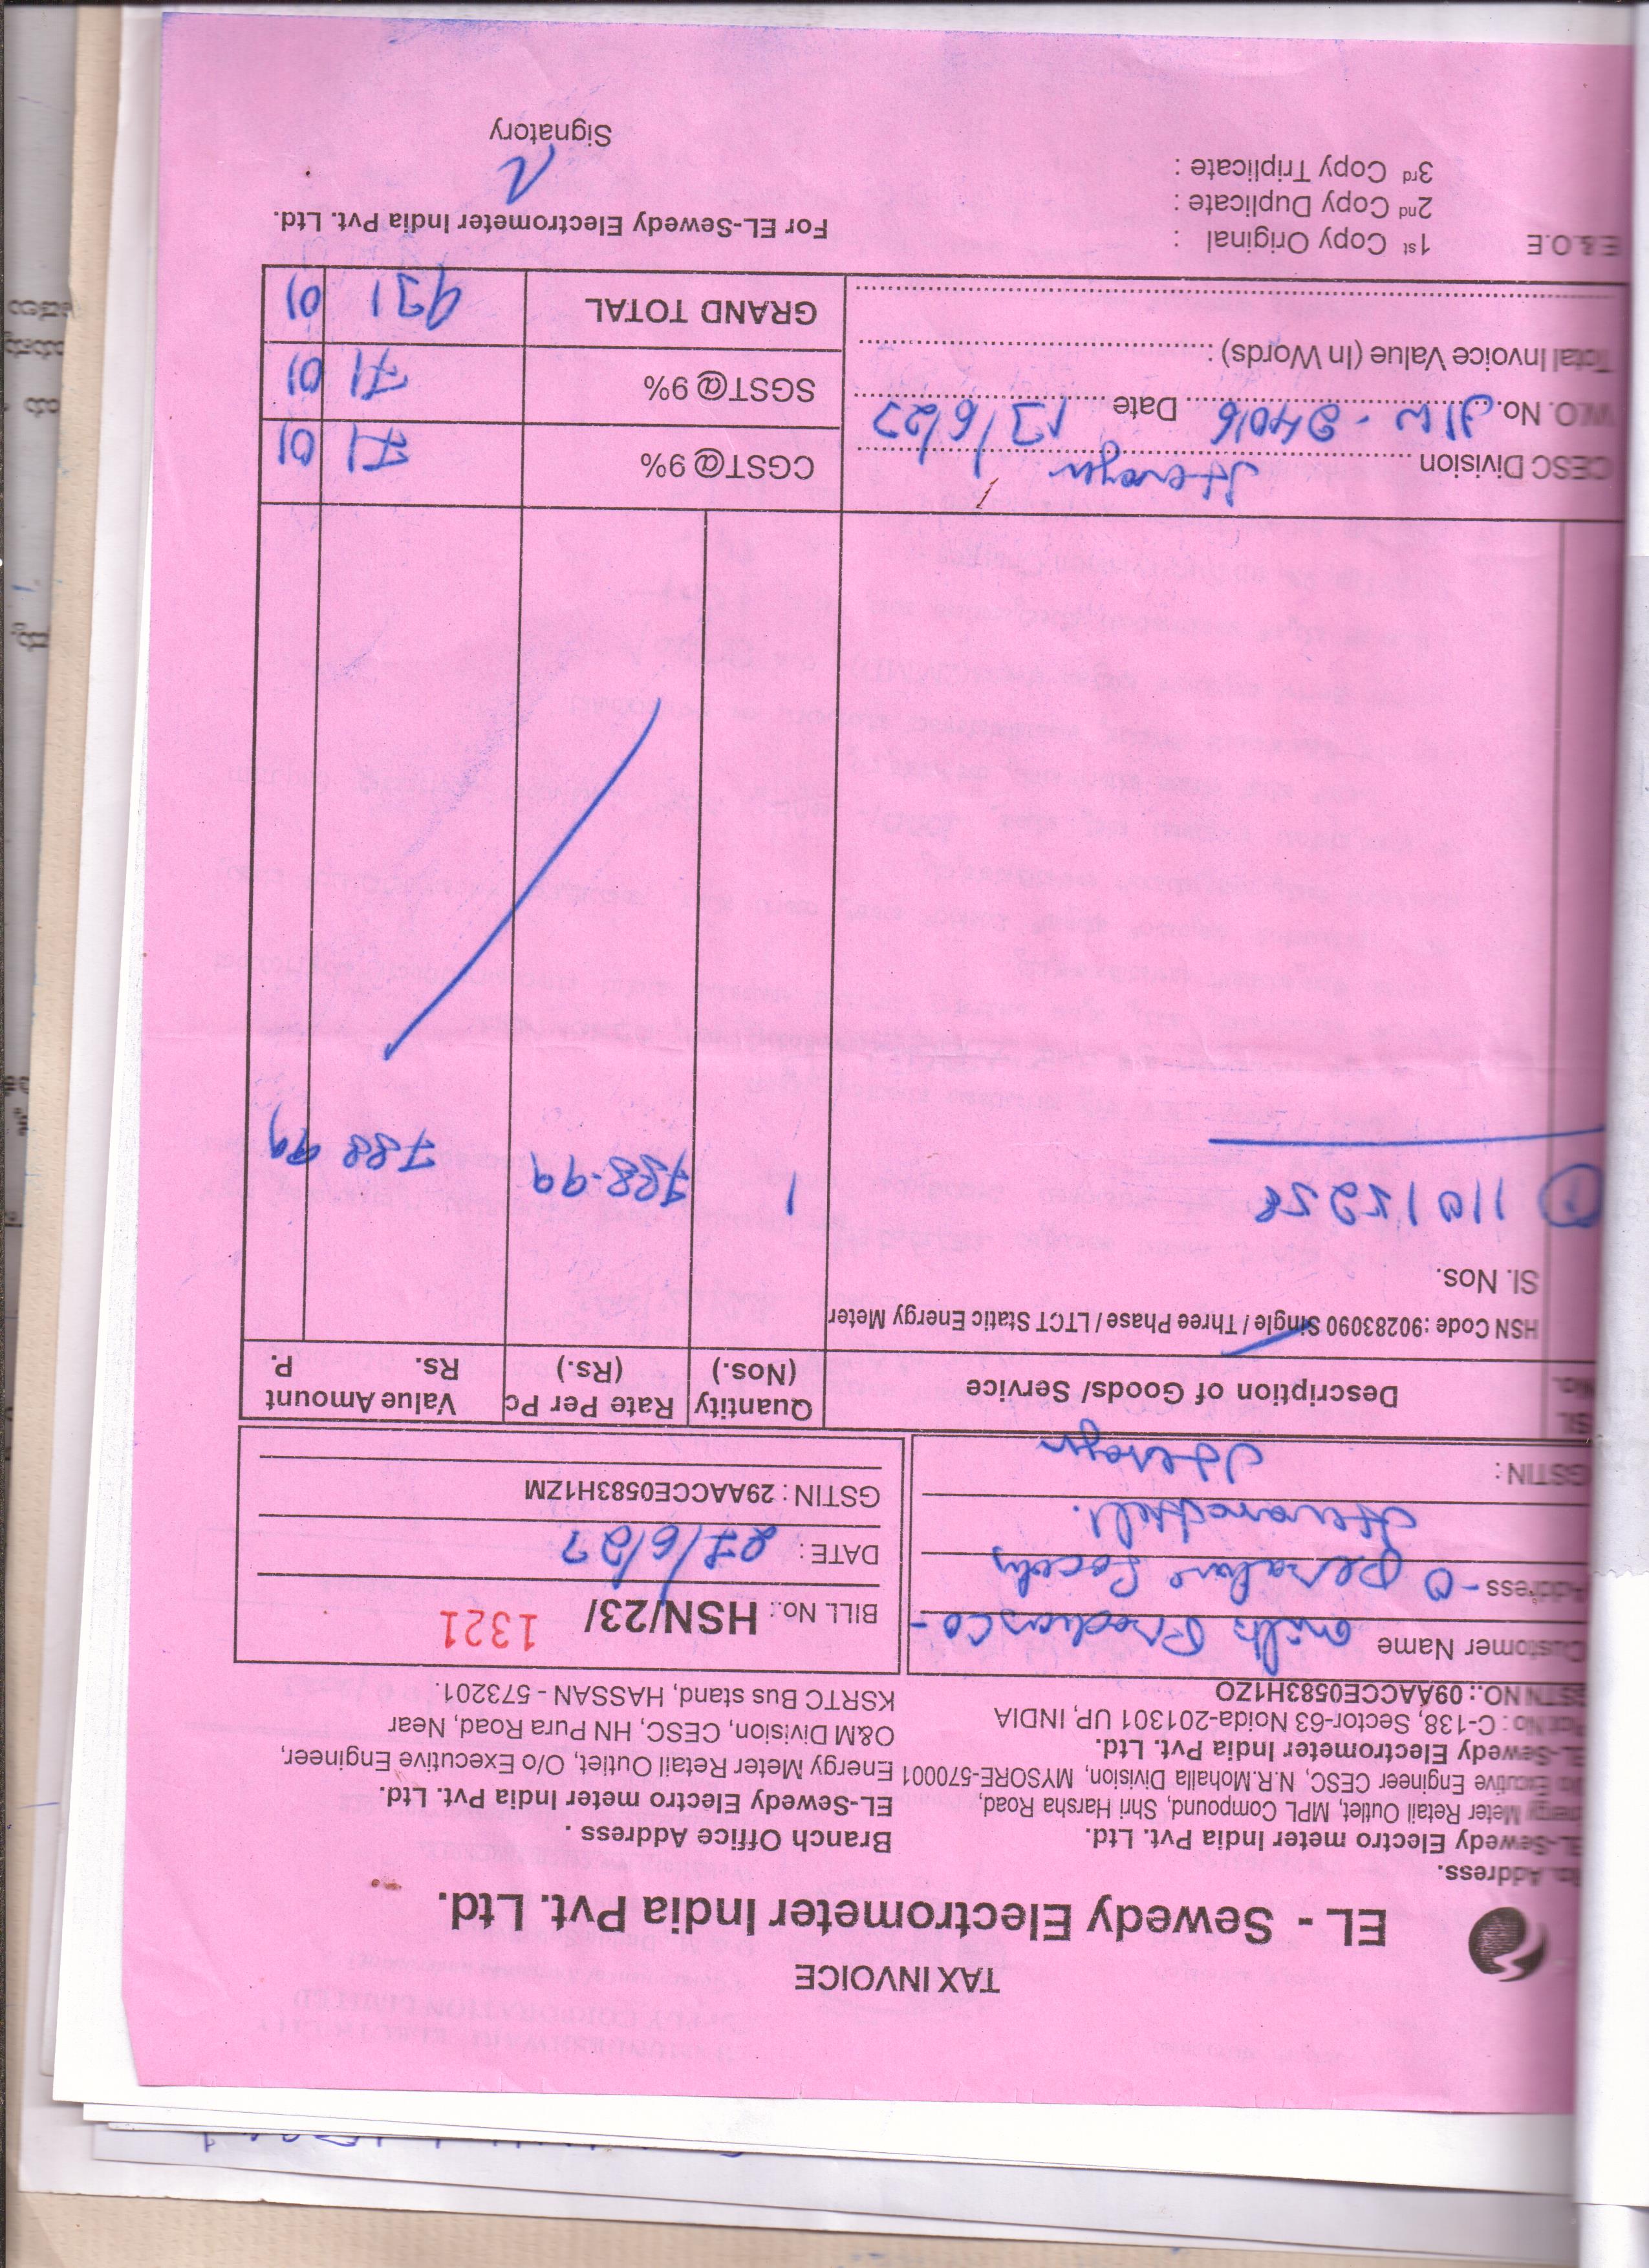 TAX INVOICE
EL - Sewedy Electrometer India Pvt. Ltd.
Address.
EL-Sewedy Electro meter India Pvt. Ltd.
Energy Meter Retail Outlet, MPL Compound, Shri Harsha Road,
Executive Engineer CESC, N.R.Mohalla Division, MYSORE-570001
EL-Sewedy Electrometer India Pvt. Ltd.
Plot No : C-138, Sector-63 Noida-201301 UP, INDIA
GSTN NO.: 09AACCE0583H1ZO
Branch Office Address .
EL-Sewedy Electro meter India Pvt. Ltd.
Energy Meter Retail Outlet, O/o Executive Engineer,
O&M Division, CESC, HN Pura Road, Near
KSRTC Bus stand, HASSAN - 573201.
Customer Name milk Producers Co-
Address - Operative Society
GSTIN :
BILL No.: HSN/23/ 1321
DATE : 27/6/23
GSTIN : 29AACCE0583H1ZM
Sl. No. Description of Goods/ Service Quantity (Nos.) Rate Per Pc (Rs.) Value Amount Rs. P.
HSN Code : 90283090 Single / Three Phase / LTCT Static Energy Meter
Sl. Nos.
1 788-99 788 99
CESC Division
W.O. No. Date 13/6/23
Total Invoice Value (In Words) :
CGST@ 9% 71 01
SGST@ 9% 71 01
GRAND TOTAL 931 01
E & O.E
1st Copy Original :
2nd Copy Duplicate :
3rd Copy Triplicate :
For EL-Sewedy Electrometer India Pvt. Ltd.
Signatory